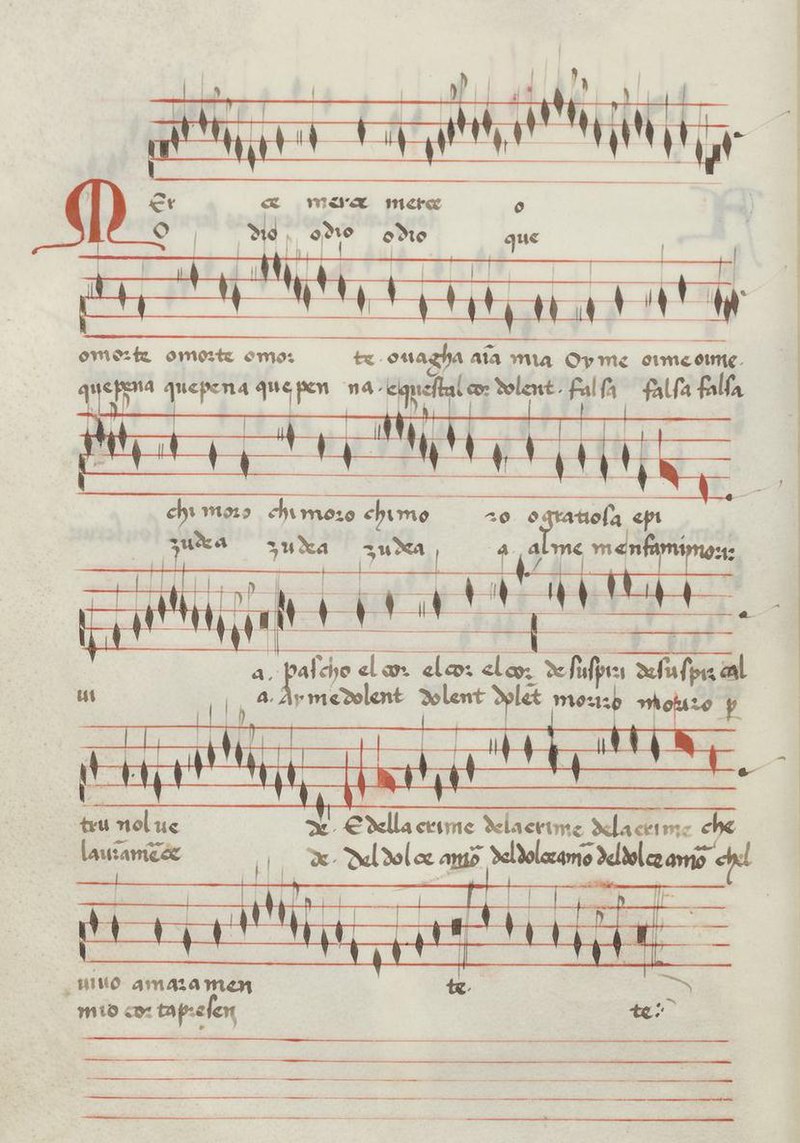 MEr ce merce merce o
O dio odio odio que
omorte omorte omor te ouagha aīa mia Oyme oime oime.
quepena quepena que pen na. e questal cor dolent. falsa falsa falsa
chi moro chi moro chi mo ro o gratiosa epi
zudea zudea zudea a alme menfamimorir
a. pascho el cor el cor el cor de suspiri de suspiri cal
ui a. Ay me dolent dolent dolēt morro morro p̲
tru nol ue de. E dellacrime delacrime delacrime che
de. Del dolce amō deldolceamō deldolce amō chel
uiuo amara men te.
mio cor tapresen te: